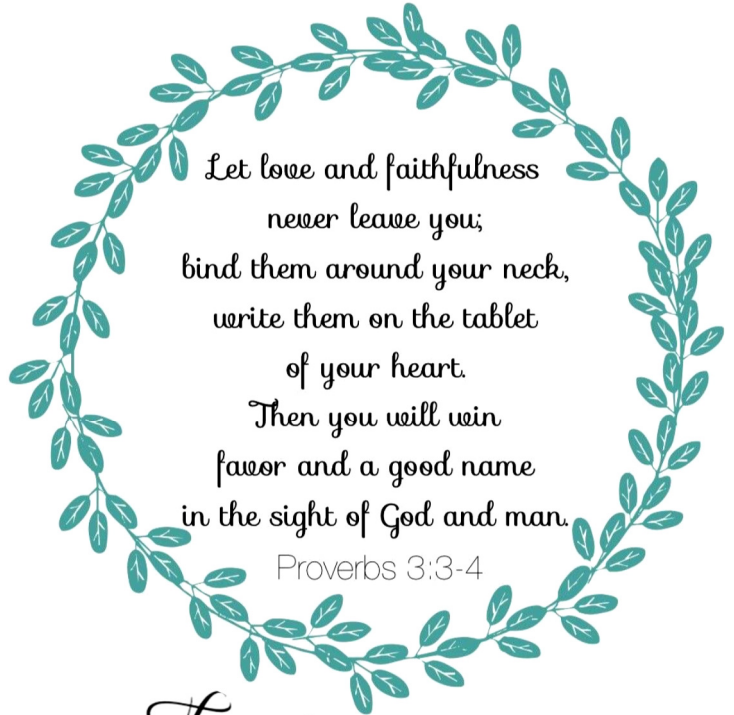 Let love and faithfulness
never leave you;
bind them around your neck,
write them on the tablet
of your heart.
Then you will win
favor and a good name
in the sight of God and man.
Proverbs 3:3-4